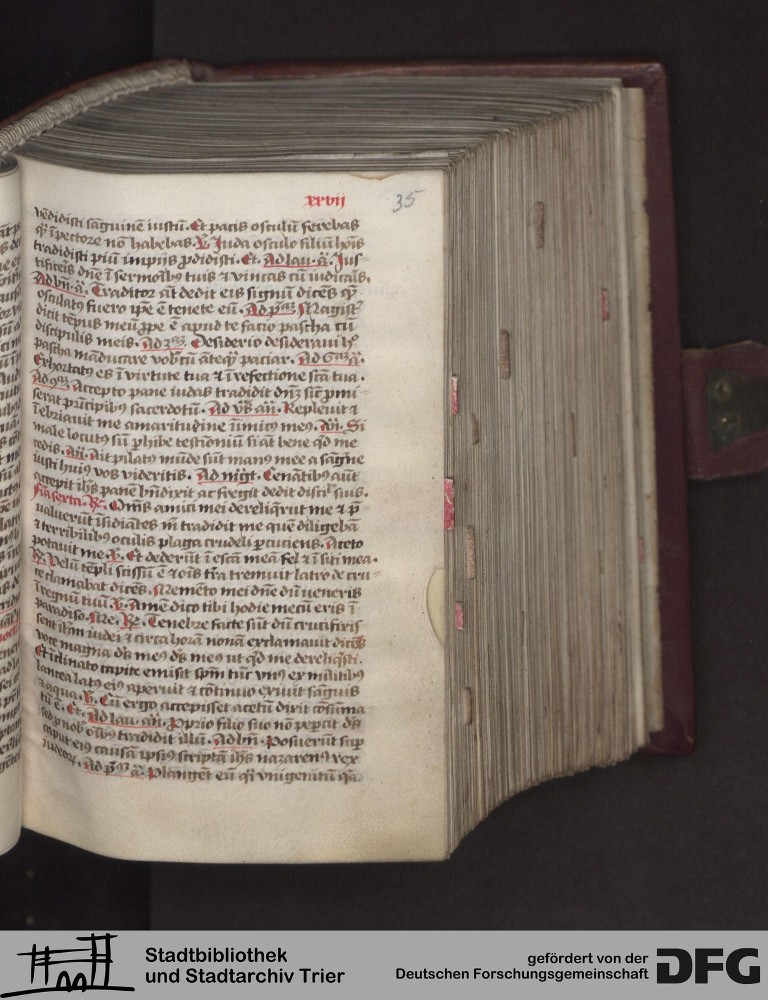 xxvij 35
vēdidisti sāguinē iustū. Et pacis osculū ferebas
qͥ ī pectore nō habebas. V. Iuda osculo filiū hoīs
tradidisti piū impijs ꝓdidisti. Et. Ad lau. ā. Jus-
tificeris dn̄e ī sermoībꝰ tuis ⁊ vincas cū iudicaīs.
Ad bn̄. ā. Traditor āt dedit eis signū dicēs qͤ
osculatꝰ fuero ip̄e ē tenete eū. Ad pͣᵐ Magistͬ
dicit tēpus meū ꝓpe ē apud te facio pascha cū
discipulis meis. Ad 3ᵃᵐ. Desiderio desideraui hͦ
pascha māducare vobᶜū ātequͣ paciar. Ad 6ᵃᵐ ā.
Exhortatꝰ es ī virtute tua ⁊ ī refectione sctā tua.
Ad 9ᵃᵐ Accepto pane iudas tradidit dn̄m sicͭ ꝓmi-
serat pͥncipibꝰ sacerdotū. Ad vb̄s an̄. Repleuit ⁊
īebriauit me amaritudine inimicꝰ meꝰ. An̄. Si
male locutꝰ sū ꝑhibe testioniū si āt bene qͥd me
cedis. An̄. Ait pilatꝰ mūde sūt manꝰ mee a sāgne
iusti huiꝰ vos videritis. Ad migt. Cenātibꝰ aūt
accepit ihs̄ panē bn̄dixit ac fregit dedit discͥl suis.
Fīa sexta. R. Om̄s amici mei dereliq̄rūt me ⁊ p̄
ualuerūt īsidiātes m̄ tradidit me quē diligebā
⁊ terribilibꝰ oculis plaga crudeli ꝑcuciens. Aceto
potauit me. V. Et dederūt ī escā meā fel ⁊ ī siti mea.
R. Velū tēpli scissū ē ⁊ oīs tr̄a tremuit latro de cru-
ce clamabat dicēs. Memēto mei dn̄e dū veneris
ī regnū tuū. V. Amē dico tibi hodie mecū eris ī
paradiso. Me. R. Tenebre facte sūt dū crucifixis
sent ihm̄ iudei ⁊ circa horā nonā exclamauit dicēs
voce magna ds̄ meꝰ ds̄ meꝰ ut qͥd me dereliq̄sti.
Et īclinato capite emisit spm̄ tūc vnꝰ ex militibꝰ
lancea latꝰ eiꝰ aperuit ⁊ cōtinuo exiuit sāguis
⁊ aqua. V. Cū ergo accepisset acetū dixit cōsūma
tū ē. Et. Ad lau. an̄. Ꝓprio filio suo nō peꝑcit ds̄
sed ꝓ nobͥ oībꝰ tradidit illū. Ad bn̄. Posuerūt suꝑ
caput eiꝰ causā ipsiꝰ scriptā ihs̄ nazarenꝰ rex
iudeorꝝ. Ad pͣᵐ ā. Plangēt eū qͥ vnigenitū qͥa
Stadtbibliothek
und Stadtarchiv Trier
gefördert von der
Deutschen Forschungsgemeinschaft
DFG